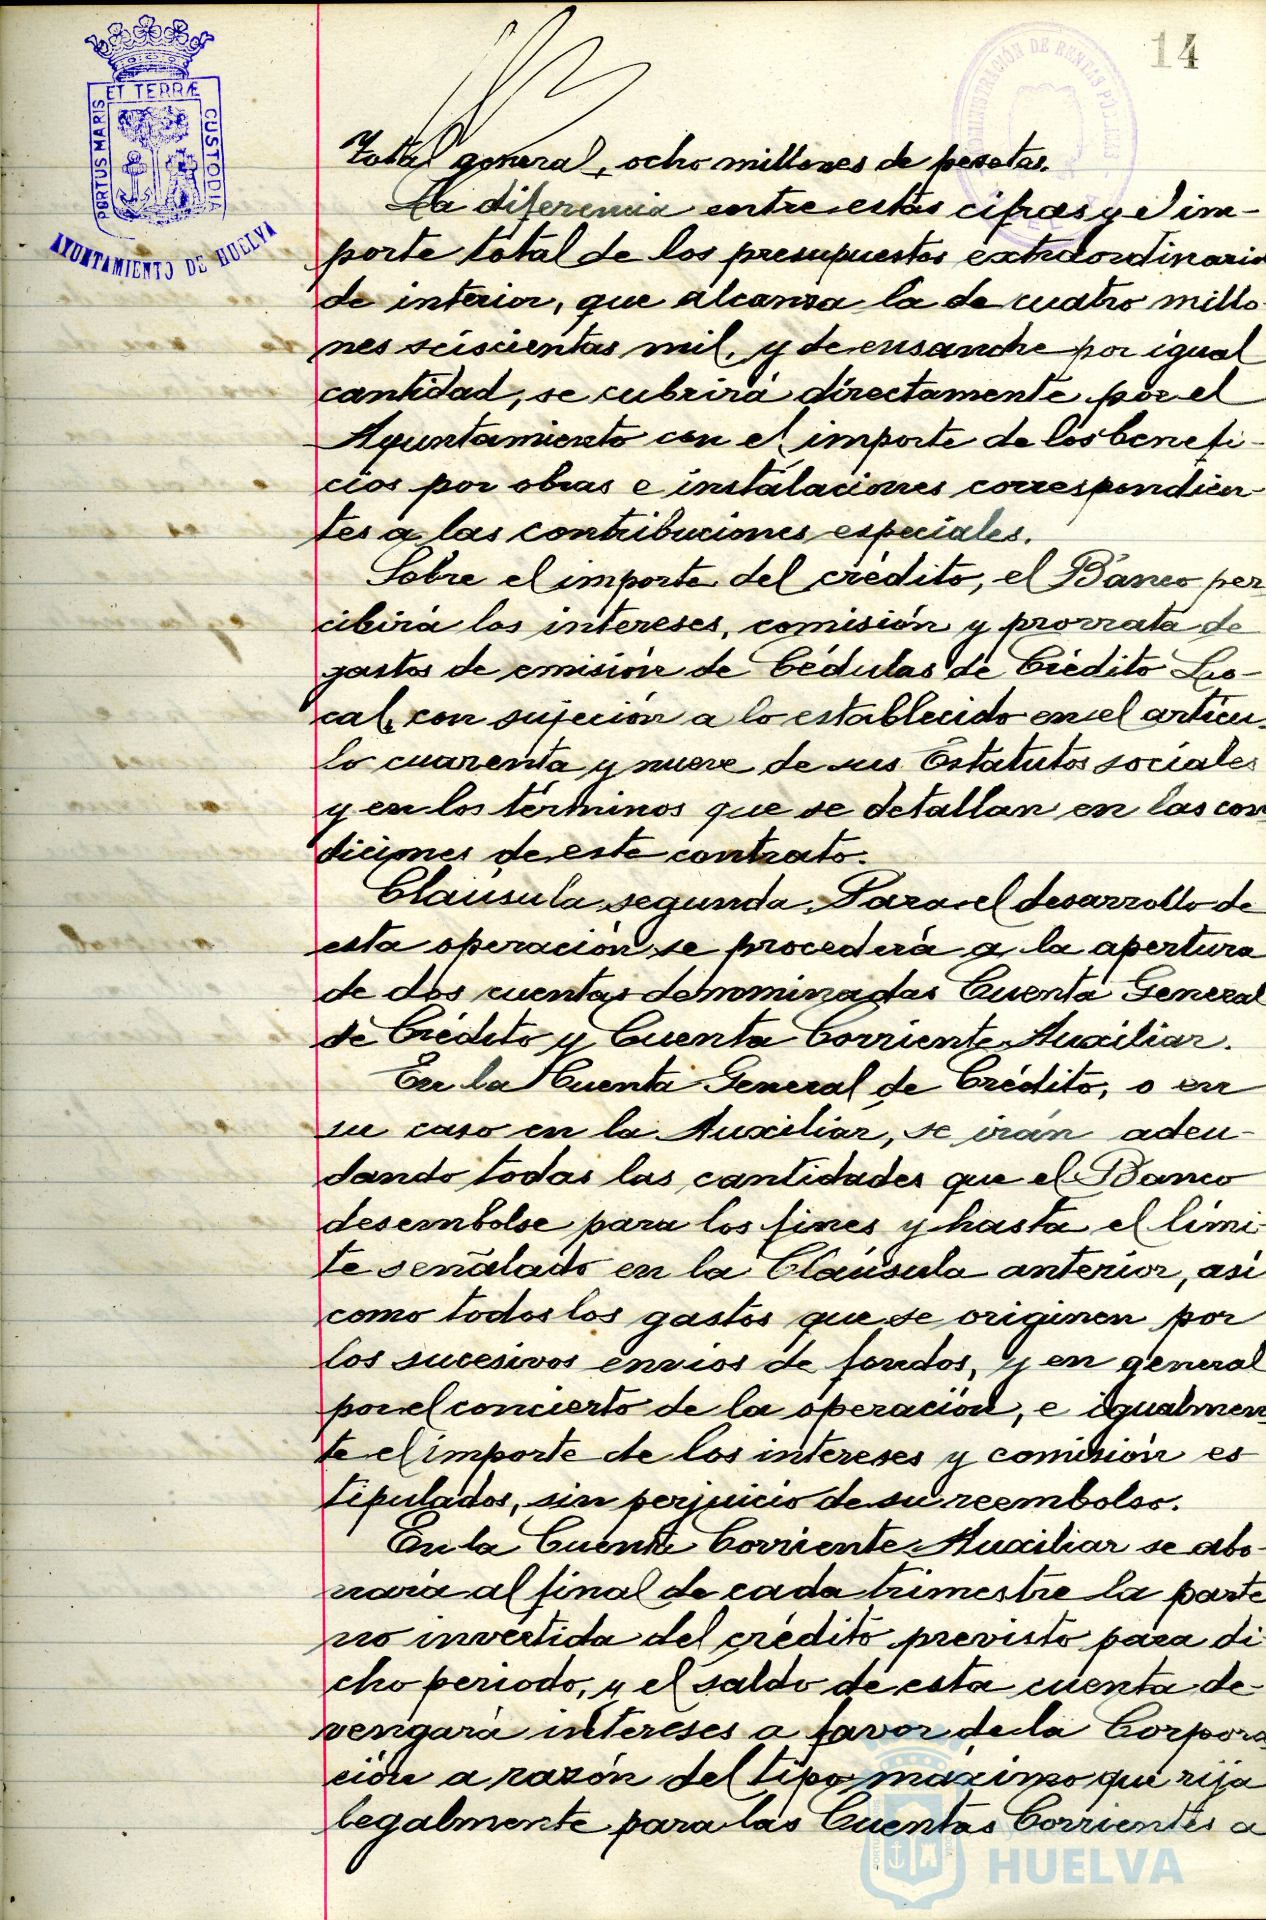 14
ET TERRÆ
PORTUS MARIS
CUSTODIA
AYUNTAMIENTO DE HUELVA
ADMINISTRACIÓN DE RENTAS PÚBLICAS
Total general, ocho millones de pesetas.
La diferencia entre estas cifras y el im-
porte total de los presupuestos extraordinario
de interior, que alcanza la de cuatro millo
nes seiscientas mil, y de ensanche por igual
cantidad, se cubrirá directamente por el
Ayuntamiento con el importe de los benefi-
cios por obras e instalaciones correspondien-
tes a las contribuciones especiales.
Sobre el importe del crédito, el Banco per
cibirá los intereses, comisión y prorrata de
gastos de emisión de Cédulas de Crédito Lo-
cal, con sujeción a lo establecido en el artícu-
lo cuarenta y nueve de sus Estatutos sociales
y en los términos que se detallan en las con
diciones de este contrato.
Cláusula segunda. Para el desarrollo de
esta operación se procederá a la apertura
de dos cuentas denominadas Cuenta General
de Crédito y Cuenta Corriente Auxiliar.
En la Cuenta General de Crédito, o en
su caso en la Auxiliar, se irán adeu-
dando todas las cantidades que el Banco
desembolse para los fines y hasta el lími-
te señalado en la Cláusula anterior, así
como todos los gastos que se originen por
los sucesivos envios de fondos, y en general
por el concierto de la operación, e igualmen
te el importe de los intereses y comisión es
tipulados, sin perjuicio de su reembolso.
En la Cuenta Corriente Auxiliar se abo-
nará al final de cada trimestre la parte
no invertida del crédito previsto para di
cho periodo, y el saldo de esta cuenta de-
vengará intereses a favor de la Corpora
ción a razón del tipo máximo que rija
legalmente para las Cuentas Corrientes a
HUELVA